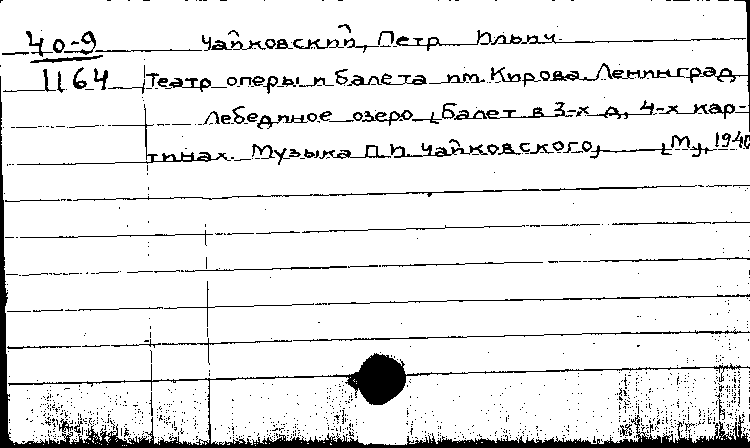 40-9 Чайковский, Петр Ильич
1164 Театр оперы и балета им. Кирова. Ленинград
Лебединое озеро [Балет в 3-х д, 4-х кар-
тинах. Музыка П.И. Чайковского] [М], 1940